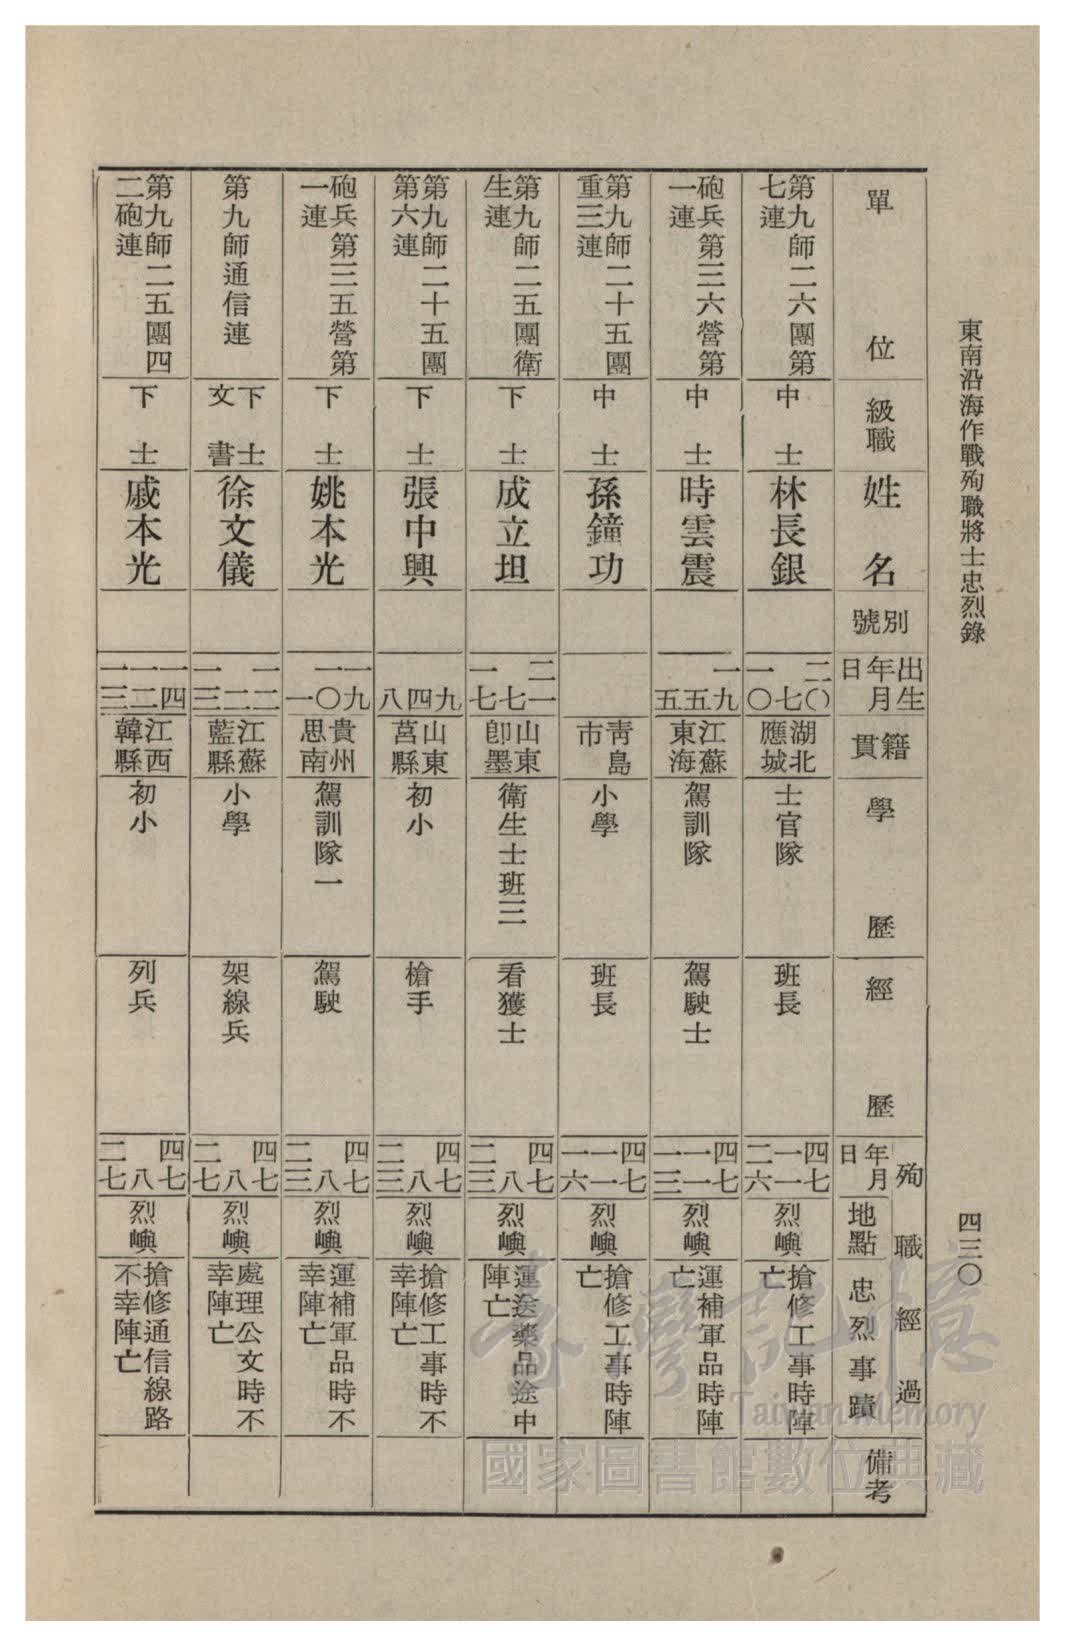 東南沿海作戰殉職將士忠烈錄
四三〇
單位
級職
姓名
別號
出生
年月
日
籍貫
學歷
經歷
殉職經過
年月
日
地點
忠烈事蹟
備考
第九師二六團第
七連
中士
林長銀
二〇
七
一〇
湖北
應城
士官隊
班長
四七
一一
二六
烈嶼
搶修工事時陣
亡
砲兵第三六營第
一連
中士
時雲震
一九
五
五
江蘇
東海
駕訓隊
駕駛士
四七
一一
一三
烈嶼
運補軍品時陣
亡
第九師二十五團
重三連
中士
孫鐘功
青島
市
小學
班長
四七
一一
一六
烈嶼
搶修工事時陣
亡
第九師二五團衛
生連
下士
成立坦
二一
七
一七
山東
卽墨
衛生士班三
看獲士
四七
八
二三
烈嶼
運送藥品途中
陣亡
第九師二十五團
第六連
下士
張中興
九
四
八
山東
莒縣
初小
槍手
四七
八
二三
烈嶼
搶修工事時不
幸陣亡
砲兵第三五營第
一連
下士
姚本光
一九
一〇
一
貴州
思南
駕訓隊一
駕駛
四七
八
二三
烈嶼
運補軍品時不
幸陣亡
第九師通信連
下士
文書
徐文儀
一二
二
一三
江蘇
藍縣
小學
架線兵
四七
八
二七
烈嶼
處理公文時不
幸陣亡
第九師二五團四
二砲連
下士
戚本光
一四
一二
一三
江西
韓縣
初小
列兵
四七
八
二七
烈嶼
搶修通信線路
不幸陣亡
臺灣記憶
Taiwan Memory
國家圖書館數位典藏